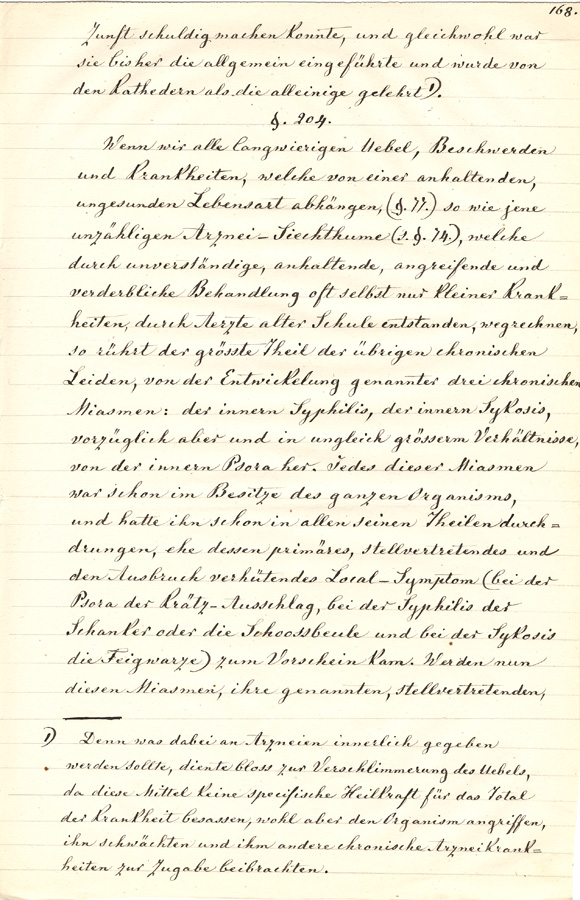 168.
Zunft schuldig machen konnte, und gleichwohl war
sie bisher die allgemein eingeführte und wurde von
den Kathedern als die alleinige gelehrt 1).
§. 204.
Wenn wir alle langwierigen Uebel, Beschwerden
und Krankheiten, welche von einer anhaltenden,
ungesunden Lebensart abhängen, (§. 77.) so wie jene
unzähligen Arznei-Siechthume (s. §. 74.), welche
durch unverständige, anhaltende, angreifende und
verderbliche Behandlung oft selbst nur kleiner Krank=
heiten, durch Aerzte alter Schule entstanden, wegrechnen,
so rührt der grösste Theil der übrigen chronischen
Leiden, von der Entwickelung genannter drei chronischen
Miasmen: der innern Syphilis, der innern Sykosis,
vorzüglich aber und in ungleich grösserm Verhältnisse,
von der innern Psora her. Jedes dieser Miasmen
war schon im Besitze des ganzen Organisms,
und hatte ihn schon in allen seinen Theilen durch=
drungen, ehe dessen primäres, stellvertretendes und
den Ausbruch verhütendes Local-Symptom (bei der
Psora der Krätz-Ausschlag, bei der Syphilis der
Schanker oder die Schoossbeule und bei der Sykosis
die Feigwarze) zum Vorschein kam. Werden nun
diesen Miasmen, ihre genannten, stellvertretenden,
1) Denn was dabei an Arzneien innerlich gegeben
werden sollte, diente bloss zur Verschlimmerung des Uebels,
da diese Mittel keine specifische Heilkraft für das Total
der Krankheit besassen, wohl aber den Organism angriffen,
ihn schwächten und ihm andere chronische Arzneikrank=
heiten zur Zugabe beibrachten.